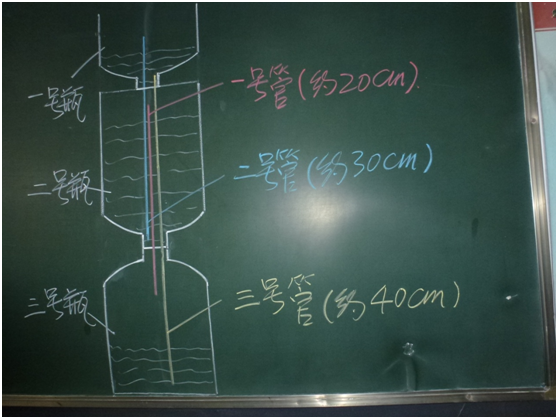 一号瓶
一号管(约20cm)
二号瓶
二号管(约30cm)
三号瓶
三号管(约40cm)